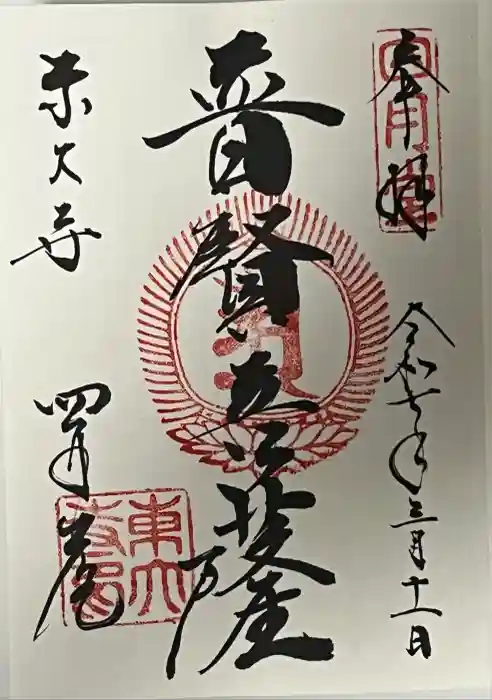 奉拝
令和七年三月十一日
普賢菩薩
東大寺
四月堂